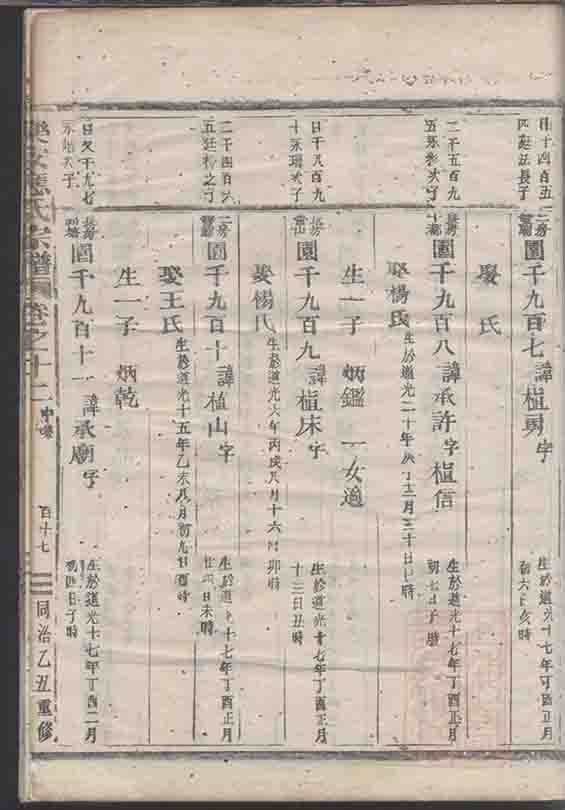 四庭法長子
園千九百七 諱植勇 字
生於道光十七年丁酉正月
初六日亥時
娶 氏
二千五百九
長房
園千九百八 諱承許 字植信
生於道光十七年丁酉正月
初七日子時
娶楊氏
生於道光二十年
月三十日 時
生一子 炳鑑 一女適
日千八百九
長房
園千九百九 諱植床 字
生於道光十七年丁酉正月
十三日丑時
娶楊氏
生於道光六年丙戌八月十六日 卯時
二千四百六
二房
園千九百十 諱植山 字
生於道光十七年丁酉正月
日未時
娶王氏
生於道光十五年乙未八月初九日酉時
生一子 炳乾
長房
園千九百十一 諱承廟 字
生於道光十七年丁酉二月
初四日子時
應氏宗譜 卷之十二
百十七
同治乙丑重修